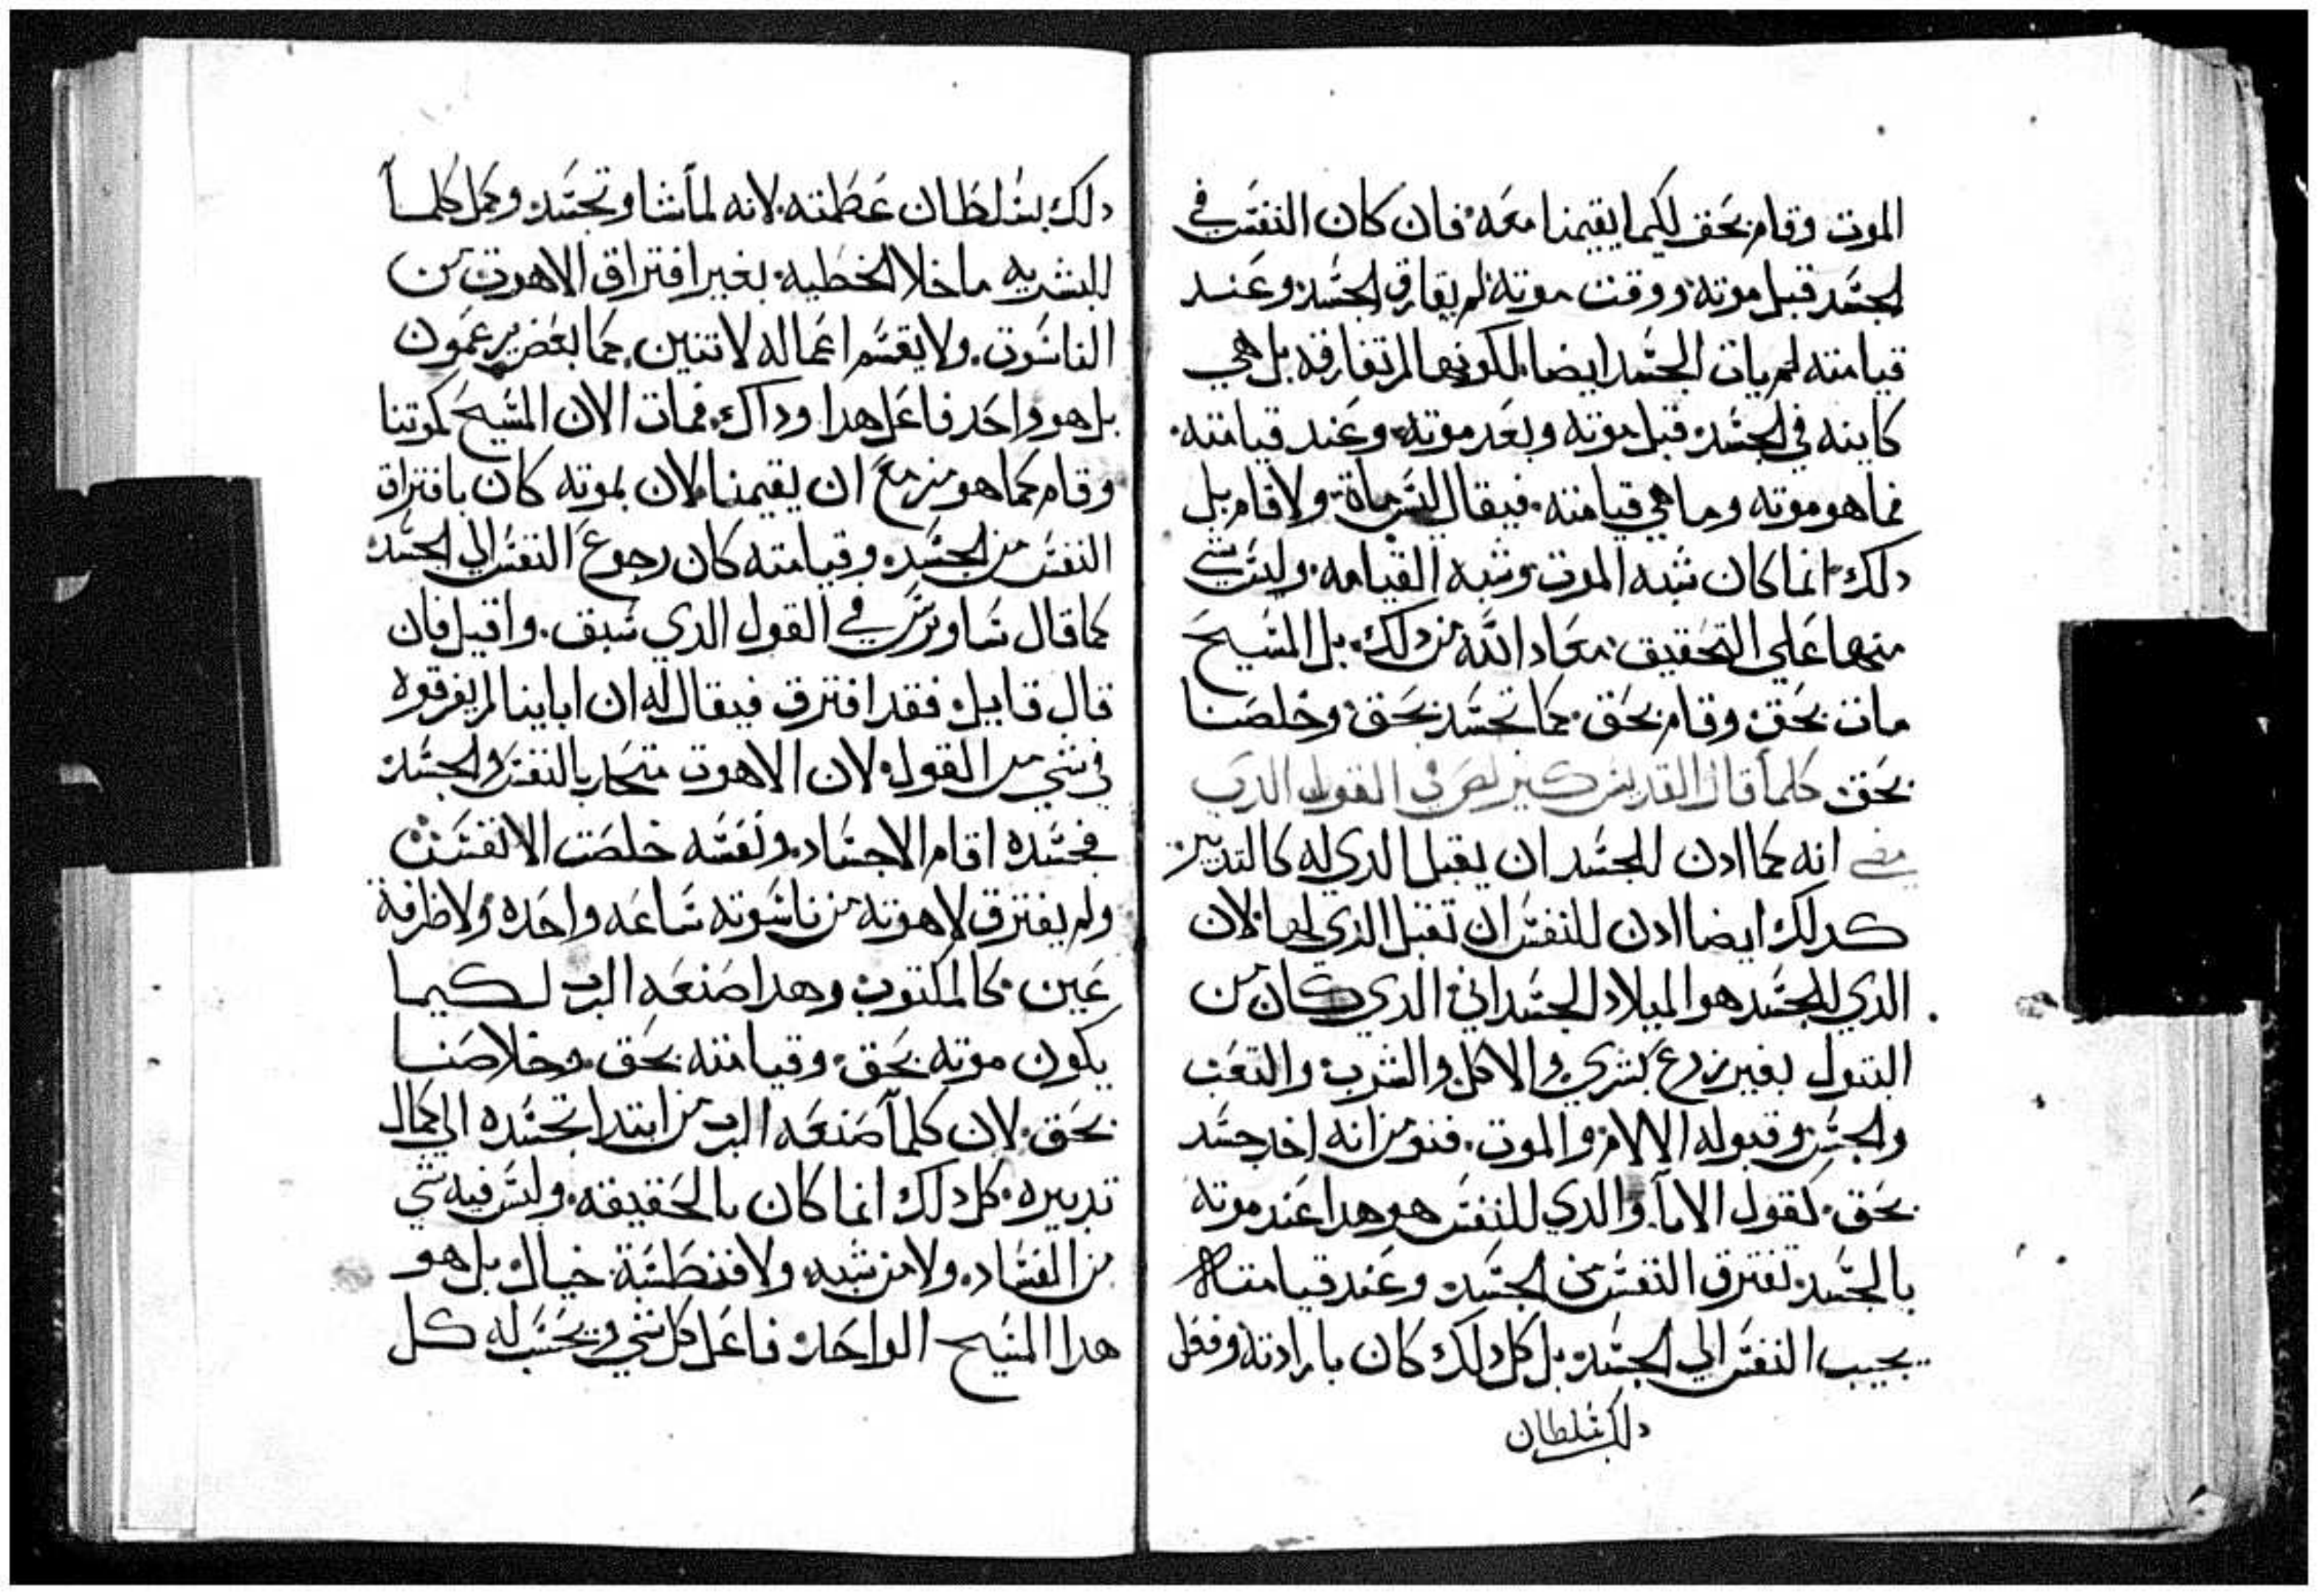 الموت وقام بحق لكيما يقيمنا معه فان كان النفس في
الجسد قبل موته ووقت موته لم يفارق الجسد وعند
قيامته لم يات الجسد ايضا لكونها لم تفارقه بل هي
كاينه في الجسد قبل موته وبعد موته وعند قيامته
فما هو موته وما هي قيامته فيقال ليس مات ولا قام بل
دلك انما كان شبه الموت وشبه القيامه وليس شي
منها علي التحقيق معاد الله من دلك بل المسيح
مات بحق وقام بحق كما تجسد بحق وخلصنا
بحق كلما قال القديس كيرلص في القول الدي
مضي انه كما ادن للجسد ان يقبل الدي له كالتدبير
كدلك ايضا ادن للنفس ان تقبل الدي لها لان
الدي للجسد هو الميلاد الجسداني الدي كان من
البتول بغير زرع بشري والاكل والشرب والتعب
والجس وقبوله الالام والموت فنومن انه اخد جسد
بحق كقول الابا والدي للنفس هو هدا عند موته
بالجسد تفترق النفس من الجسد وعند قيامته
يجيب النفس الي الجسد بل كل دلك كان بارادته وفعل
دلك بسلطان
دلك بسلطان عظمته لانه لما شا وتجسد وكمل كلما
للبشريه ما خلا الخطيه بغير افتراق الاهوت من
الناسوت ولا يقسم اعماله لاتنين كما بعض يزعمون
بل هو واحد فاعل هدا وداك فمات الان المسيح كموتنا
وقام كما هو مزمع ان يقيمنا لان بموته كان بافتراق
النفس من الجسد وقيامته كان رجوع النفس الي الجسد
كما قال ساويرس في القول الدي سبق واقيل فان
قال قايل فقد افترق فيقال له ان اباينا لم يفرقوه
في شي من القول لان الاهوت متحد بالنفس والجسد
فجسده اقام الاجساد ونفسه خلصت الانفس
ولم يفترق لاهوته من ناسوته ساعه واحده ولا طرفة
عين كالمكتوب وهدا صنعه الرب لكيما
يكون موته بحق وقيامته بحق وخلاصنا
بحق لان كلما صنعه الرب من ابتدا تجسده الي كمال
تدبيره كل دلك انما كان بالحقيقه وليس فيه شي
من الفساد ولا من شبه ولا فنطسة خيال بل هو
هدا المسيح الواحد فاعل كل شي ويحسب له كل